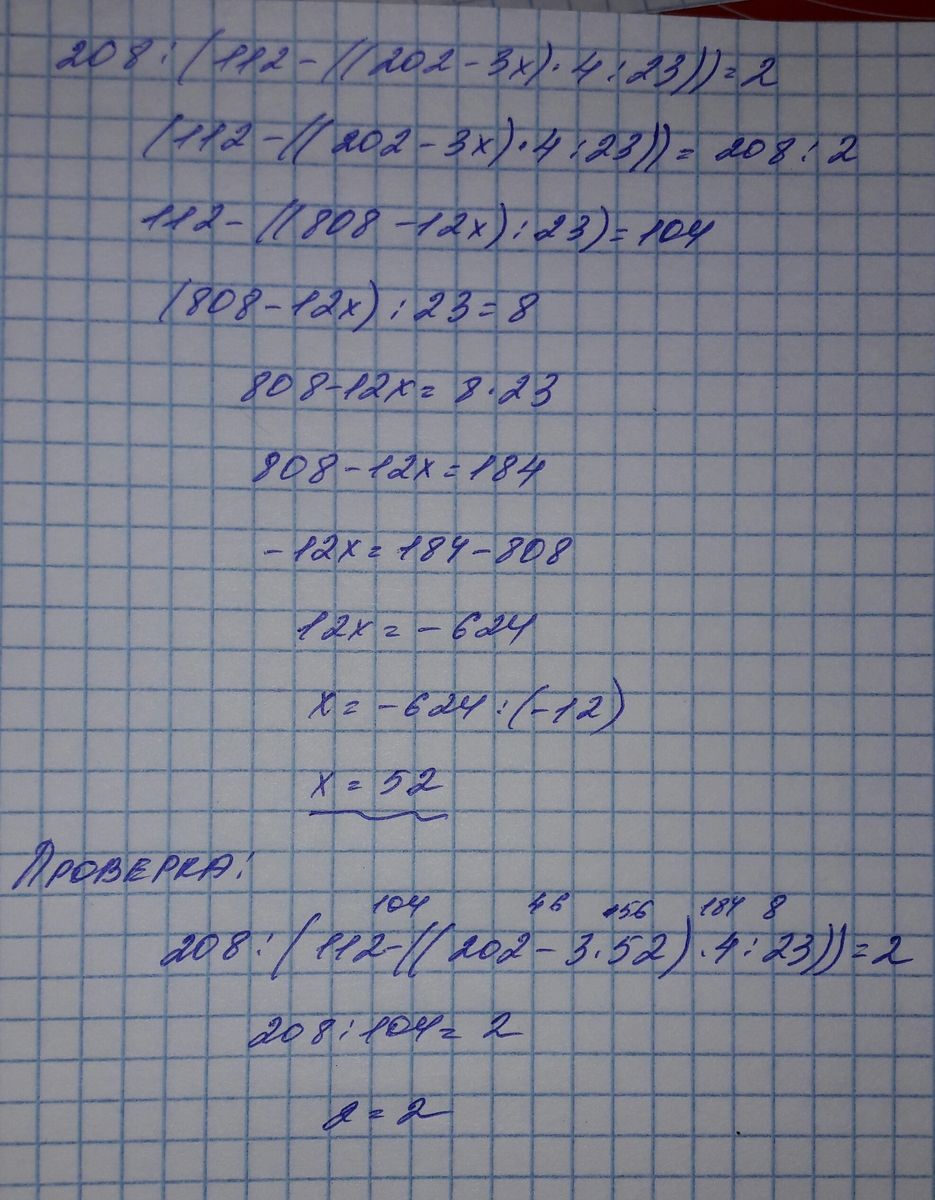 208:(112-((202-3x)·4:23))=2
(112-((202-3x)·4:23))=208:2
112-((808-12x):23)=104
(808-12x):23=8
808-12x=8·23
808-12x=184
-12x=184-808
12x=-624
x=-624:(-12)
x=52
ПРОВЕРКА:
104 46 156 184 8
208:(112-((202-3·52)·4:23))=2
208:104=2
2=2